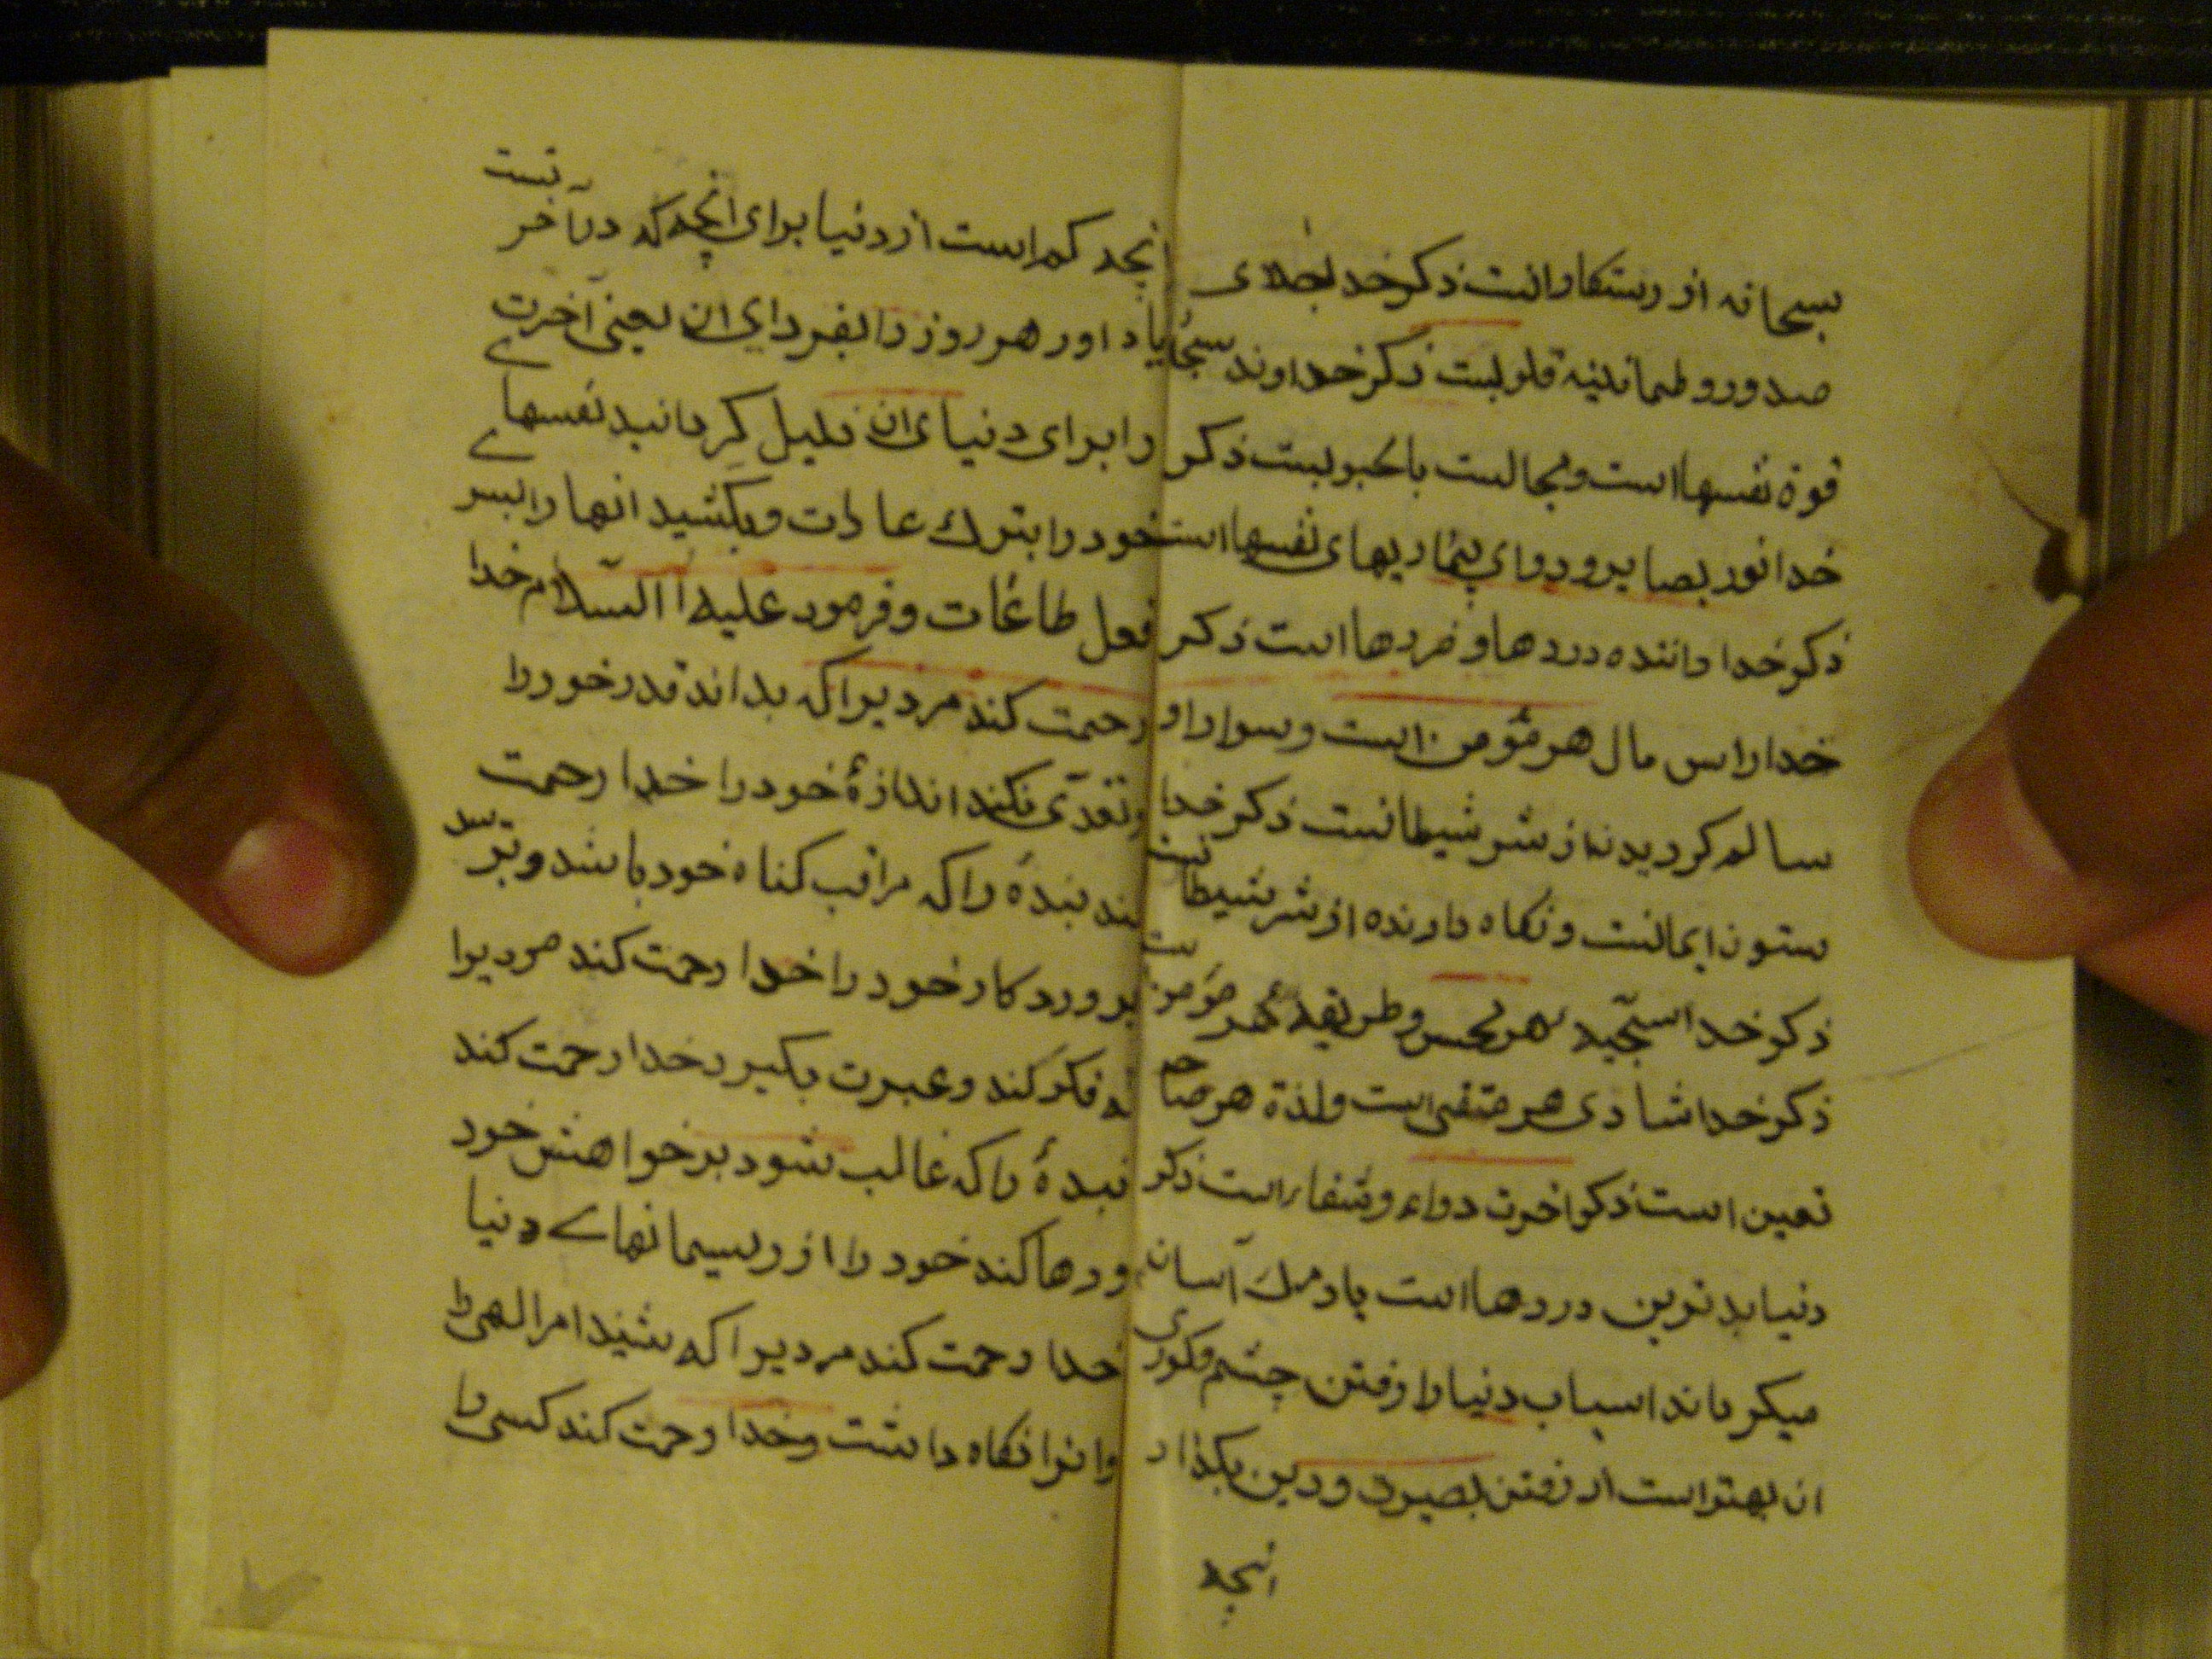 سبحانه از رستکارانست ذکر خدا جلای
صدور و طمانینه قلوبست ذکر خداوند سبحا
قوة نفسها است و مجالست با محبوبست ذکر
خدا نور بصایر و دوای بیماریهای نفسها است
ذکر خدا راننده دردها و ضررها است ذکر
خدا راس مال هر مؤمن است و سوار او
سالم کردیدن از شر شیطانست ذکر خدا
ستون ایمانست و نکاه دارنده از شر شیطانست
ذکر خدا سجیه هر محسن و طریقه هر مؤمن است
ذکر خدا شادی هر متقی است و لذة هر صاحب
تعین است ذکر اخرت دواء و شفا است ذکر
دنیا بدترین دردها است یاد مرک آسان
میکرداند اسباب دنیا را رفتن چشم و کوری
ان بهتر است از رفتن بصیرت و دین بکذار
انچه
انچه کم است از دنیا برای انچه که در آخر تست
یاد اور هر روز را بفردای ان یعنی آخرت
را برای دنیای ان ذلیل کردانید نفسهای
خود را بترک عادات و بکشید انها را بسر
فعل طاعات و فرمود علیه السلام خدا
رحمت کند مردیرا که بداند قدر خود را
و تعدی نکند اندازهٔ خود را خدا رحمت
کند بندهٔ را که مراقب کناه خود باشد و بترسد
پرورد کار خود را خدا رحمت کند مردیرا
که فکر کند و عبرت بکیرد خدا رحمت کند
بندهٔ را که غالب شود بر خواهش خود
و رها کند خود را از ریسمانهای دنیا
خدا رحمت کند مردیرا که شنید امر الهی را
و انرا نکاه داشت و خدا رحمت کند کسی را